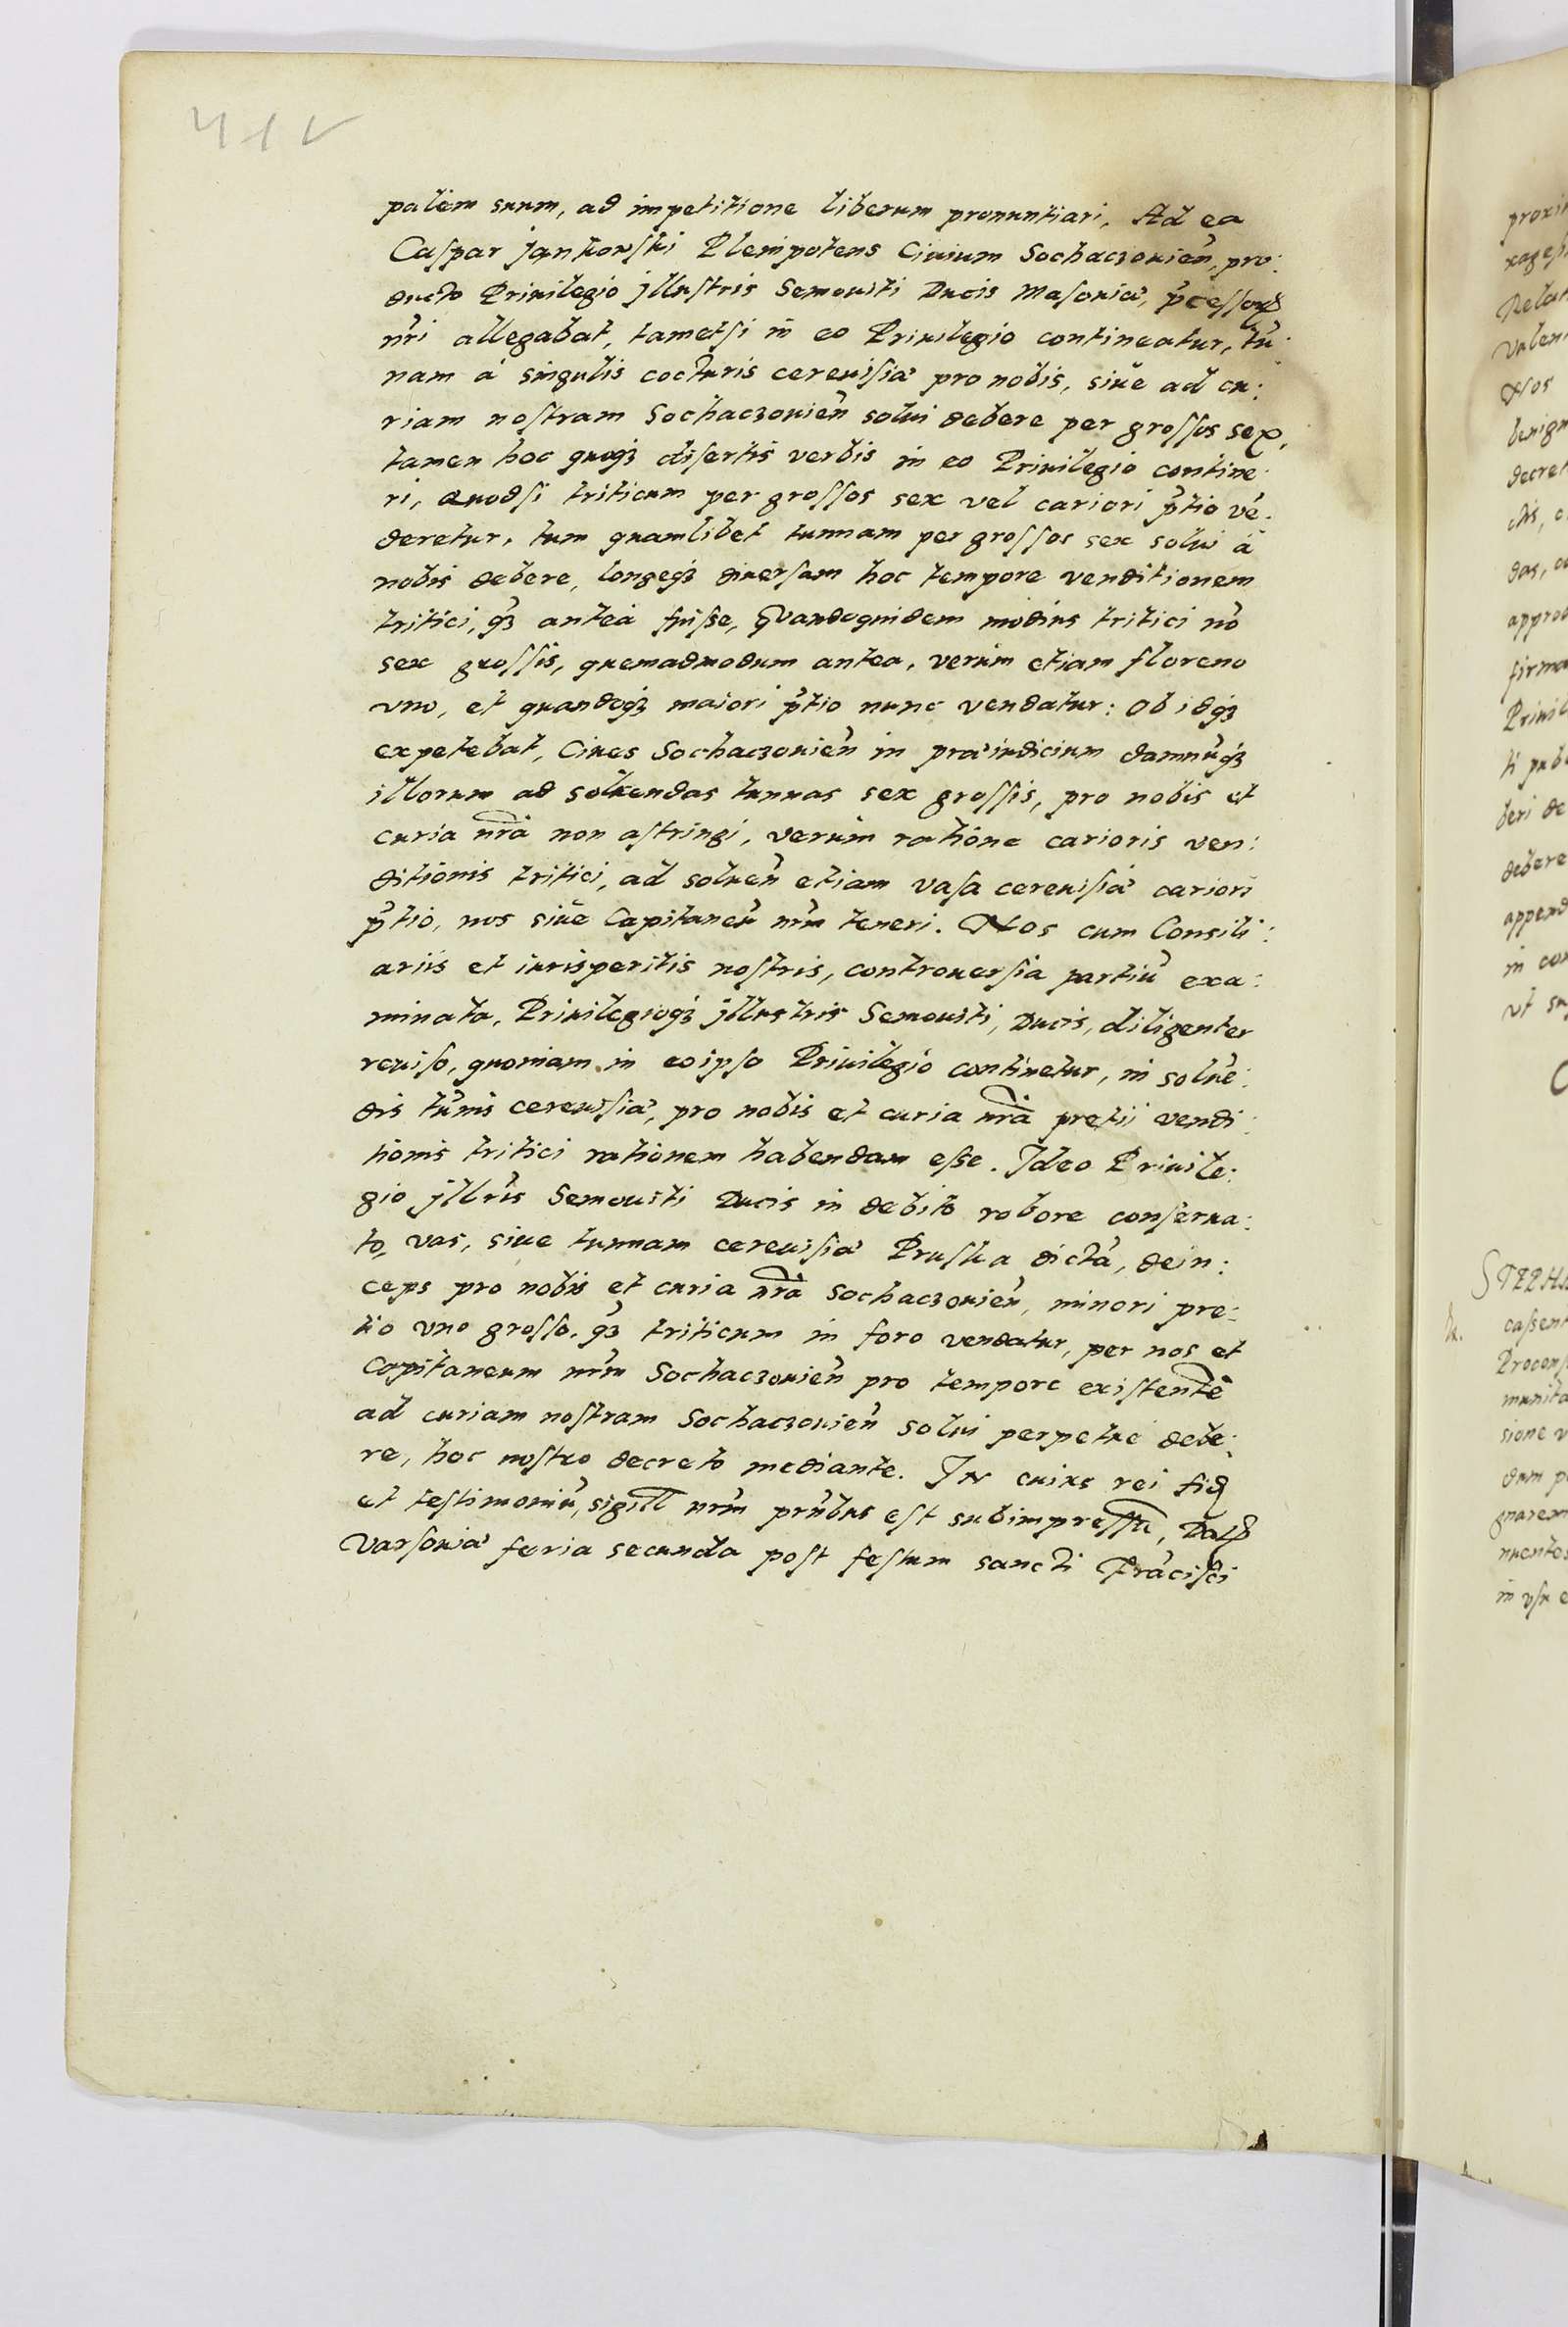 41v
palem suum, ad impetitione liberum pronuntiari, Ad ea
Caſpar jankowſki Plenipotens Ciuium Sochaczouien̄, pro:
ducto Priuilegio jlluſtris Semouiti Ducis Maſouiæ, p̄ceſſoꝝ
nr̄i allegabat, tametſi in eo Priuilegio contineatur, tū:
nam à singulis cocturis cereuiſiæ pro nobis, siue ad cu:
riam noſtram Sochaczouien̄ solui debere per groſſos sex,
tamen hoc quoqꝫ diſertis verbis in eo Priuilegio contine:
ri, Quodſi triticum per groſſos sex vel cariori p̄tio vē:
deretur, tum quamlibet tunnam per groſſos sex solui à
nobis debere, longeqꝫ diuerſam hoc tempore venditionem
tritici, qꝫ antea fuiſse, Quandoquidem modius tritici nō
sex groſſis, quemadmodum antea, verum etiam floreno
vno, et quandoqꝫ maiori p̄tio nunc vendatur: Ob idqꝫ
expetebat, Ciues Sochaczouien̄ in præiudicium damnūqꝫ
illorum ad soluendas tunnas sex groſſis, pro nobis et
curia nr̄a non aſtringi, verum ratione carioris ven:
ditionis tritici, ad soluen̄ etiam vaſa cereuiſiæ cariori
p̄tio, nos siue Capitaneū nr̄m teneri. Nos cum Conſili:
ariis et iurisperitis noſtris, controuerſia partiū exa:
minata, Priuilegioqꝫ jlluſtris Semouiti, Ducis, diligenter
reuiſo, quoniam in eoipſo Priuilegio continetur, in soluē:
dis tūnis cereuiſiæ, pro nobis et curia nr̄a pretii vendi:
tionis tritici rationem habendam eſse. Ideo Priuile:
gio jllrīs Semouiti Ducis in debito robore conſerua:
to, vas, siue tunnam cereuiſiæ Pruſka dictā, dein:
ceps pro nobis et curia nr̄a Sochaczouien̄, minori pre:
tio vno groſſo, qꝫ triticum in foro vendatur, per nos et
Capitaneum nr̄m Sochaczouien̄ pro tempore exiſtentē
ad curiam noſtram Sochaczouien̄ solui perpetue debe:
re, hoc noſtro decreto mediante. IN cuius rei fiꝺ
et teſtimoniū, sigill nr̄m pn̄tbus eſt subimpreſſū, Datꝫ
Varſouiæ feria secunda poſt feſtum sancti Frāciſci